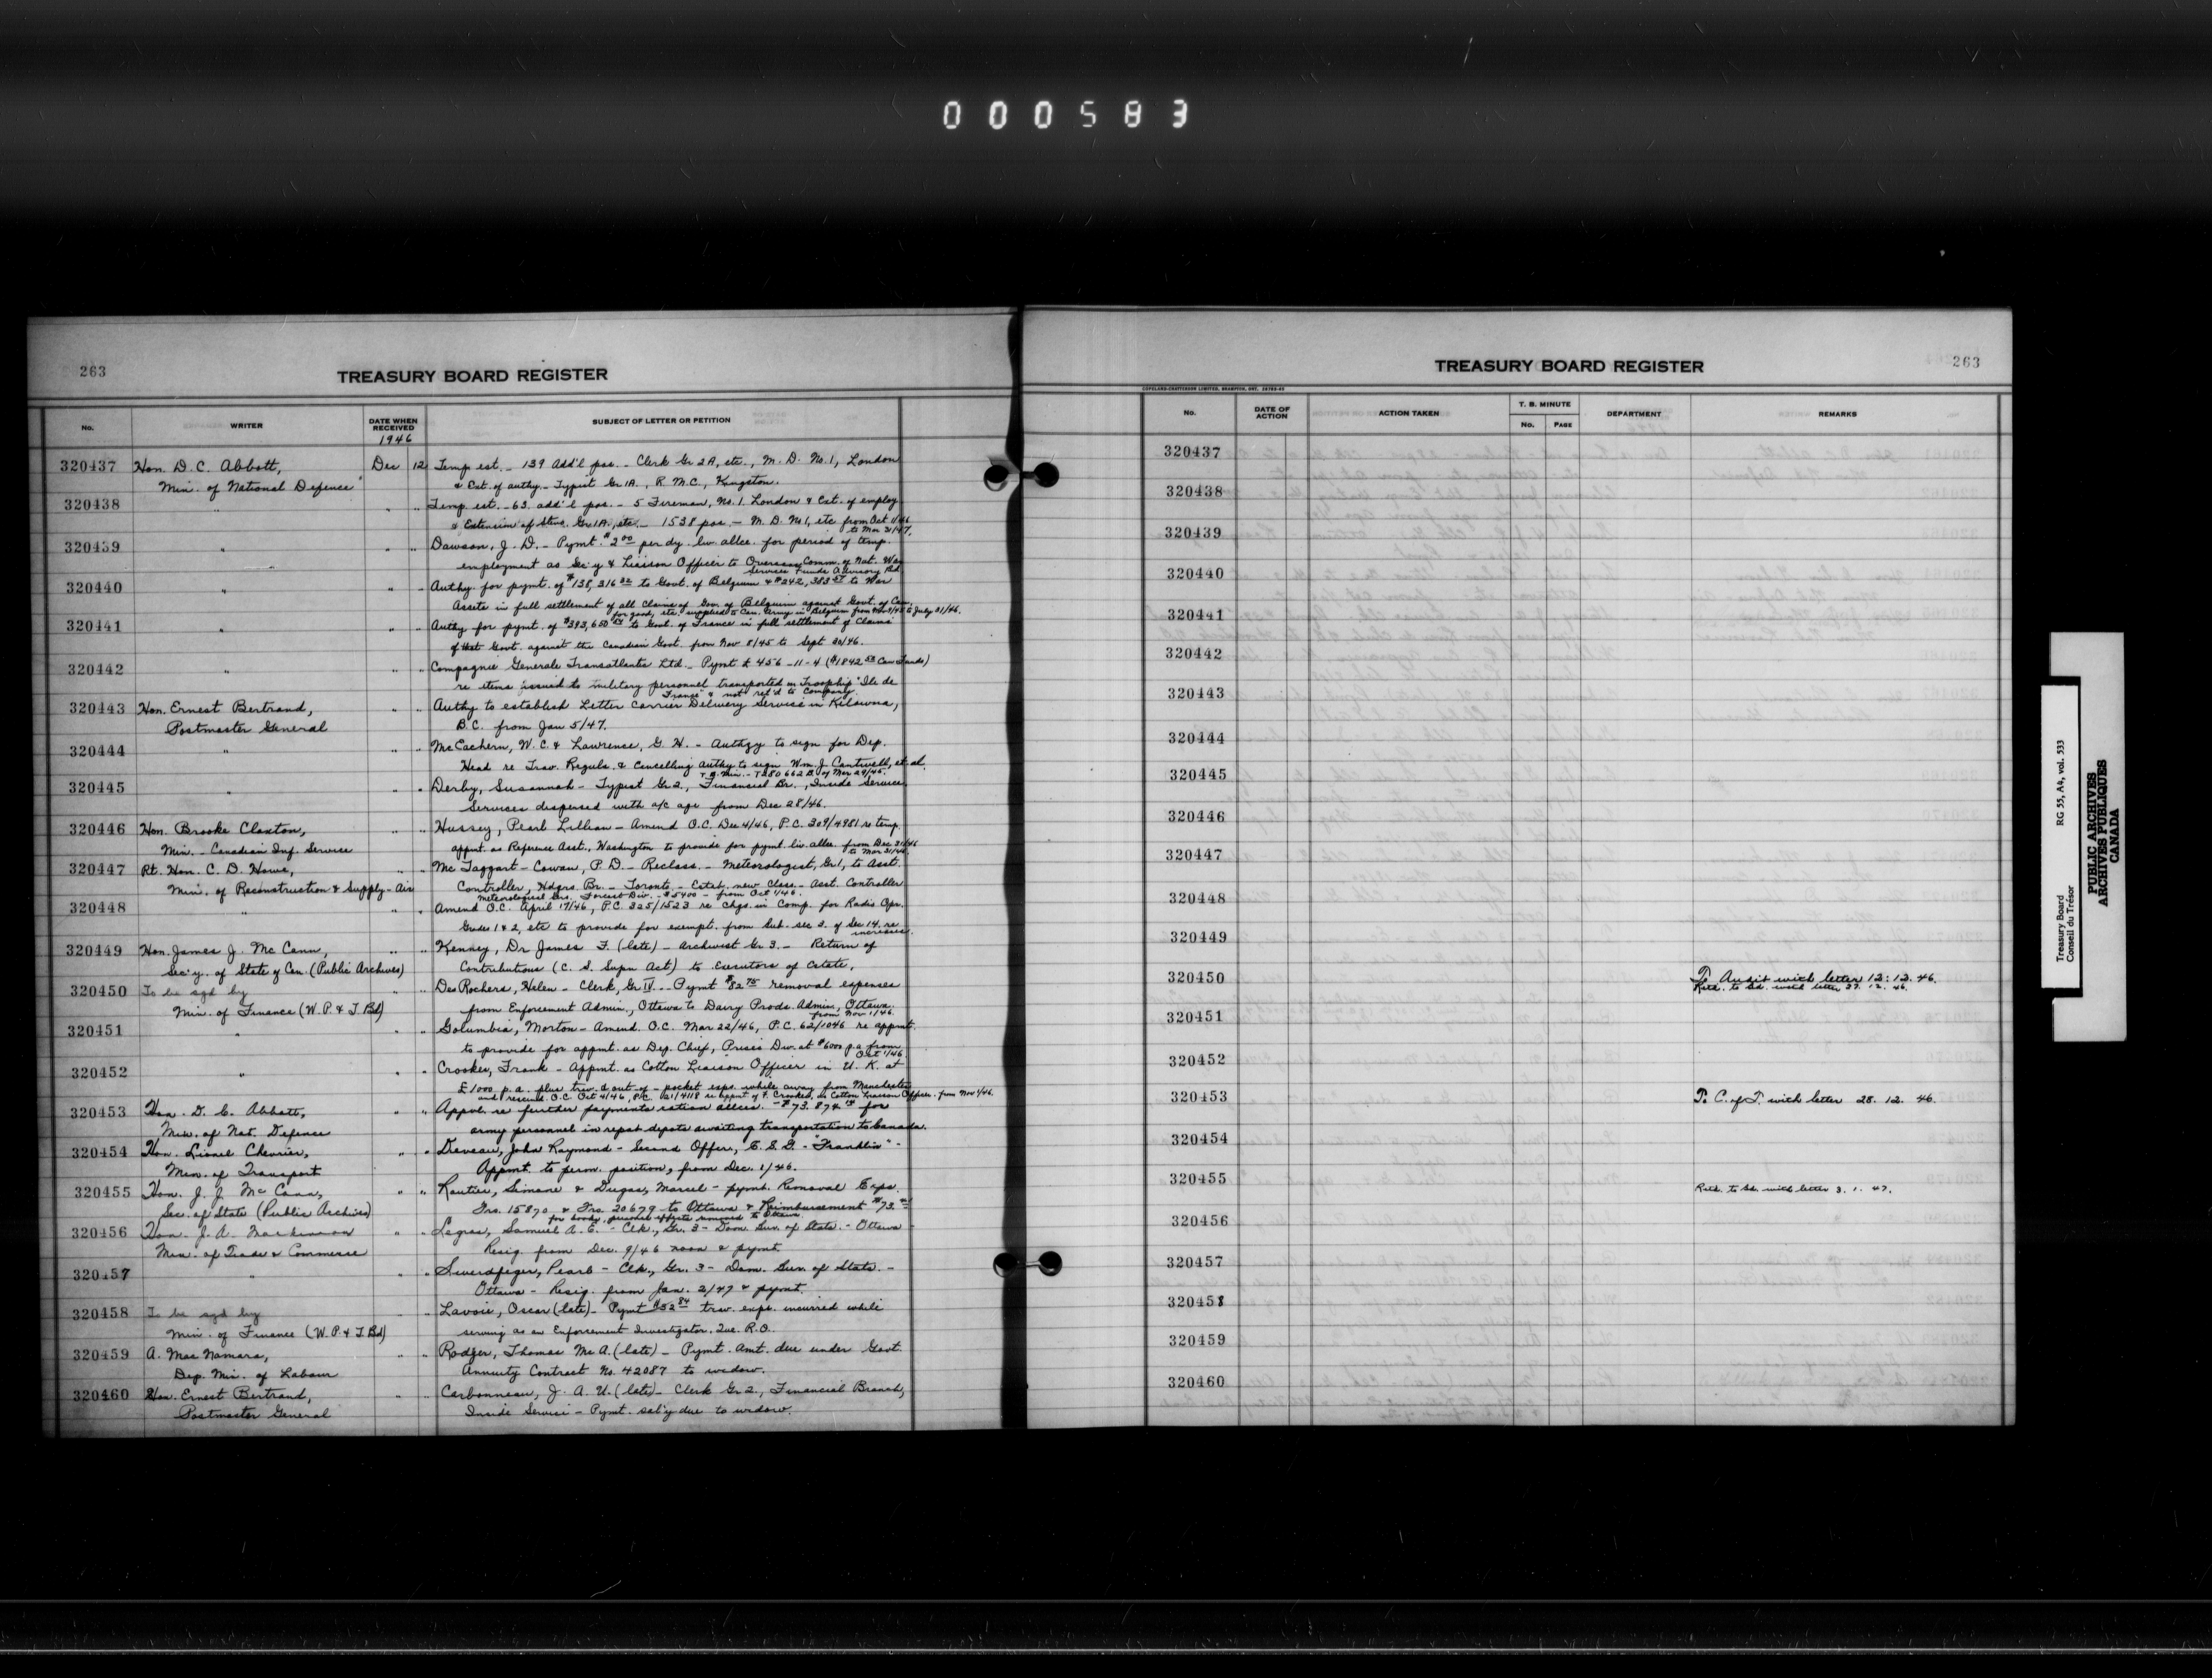 000583
263
TREASURY BOARD REGISTER
No.
WRITER
DATE WHEN RECEIVED
1946
SUBJECT OF LETTER OR PETITION
320437 Hon. D. C. Abbott, Dec 12 Temp est. - 139 add'l pos. - Clerk Gr 2A, etc., M. D. No. 1, London
Min. of National Defence & Ext. of authy. - Typist Gr 1A., R. M. C., Kingston.
320438 " " " Temp. est. - 63 add'l pos. - 5 Firemen, No. 1 London & Ext. of employ
& Extension of Steno. Gr 1A., etc. - 1538 pos. - M. D. No 1, etc from Oct 1/46
to Mar 31/47.
320439 " " " Dawson, J. D. - Pymt. $2.00 per dy. liv. allce. for period of temp.
employment as Sec'y & Liaison Officer to Overseas Comm. of Nat. War
Services Funds Advisory Bd.
320440 " " " Authy. for pymt. of $138,316 32 to Govt. of Belgium & $242,383 to War
Assets in full settlement of all Claims of Gov. of Belgium against Govt. of Can.
for goods, etc. supplied to Can. Army in Belgium from to July 31/46.
320441 " " " Authy for pymt. of $393,650 54 to Govt. of France in full settlement of Claims
of that Govt. against the Canadian Govt. from Nov 8/45 to Sept 30/46.
320442 " " " Compagnie Generale Transatlantic Ltd. - Pymt £ 456-11-4 ($1842 53 Can Funds)
re items issued to military personnel transported in Troopship "Ile de
France" & not ret'd to Company.
320443 Hon. Ernest Bertrand, " " Authy to establish Letter Carrier Delivery Service in Kelowna,
Postmaster General B.C. from Jan 5/47.
320444 " " " McEachern, W. C. & Lawrence, G. H. - Authgy to sign for Dep.
Head re Trav. Reguls. & Cancelling authy to sign Wm. J. Cantwell, et al.
T. B. Min. - T 280662 B of Mar 29/46.
320445 " " " Derby, Susannah - Typist Gr 2, Financial Br., Inside Service,
Services dispersed with a/c age from Dec 28/46.
320446 Hon. Brooke Claxton, " " Hussey, Pearl Lillian - Amend O.C. Dec 4/46, P.C. 309/4981 re temp.
Min. - Canadian Inf. Service appmt. as Reference Asst., Washington to provide for pymt. liv. allce. from Dec 31/46
to Mar 31/48.
320447 Rt. Hon. C. D. Howe, " " McTaggart-Cowan, P. D. - Reclass. - Meteorologist, Gr 1, to Asst.
Min. of Reconstruction & Supply - Air Controller, Hdqrs. Br. - Toronto - Estab. new Class. - Asst. Controller
Meteorological Ser. Forecast Div. - $5400 - from Oct 1/46.
320448 " " " Amend O.C. April 17/46, P.C. 325/1523 re Chgs. in Comp. for Radio Opr.
Grades 1 & 2, etc to provide for exempt. from Sub-sec 3. of Sec 14. re
increases.
320449 Hon. James J. McCann, " " Kenney, Dr James F. (late) - Archivist Gr 3. - Return of
Sec'y. of State of Can. (Public Archives) Contributions (C. S. Supn Act) to Executors of Estate.
320450 To be sgd by " " DesRochers, Helen - Clerk, Gr IV. - Pymt $82 75 removal expenses
Min. of Finance (W. P. & T. Bd) from Enforcement Admin., Ottawa to Dairy Prods. Admin, Ottawa.
from Nov 1/46.
320451 " " " Golumbia, Morton - Amend. O.C. Mar 22/46, P.C. 62/1046 re appmt.
to provide for appmt. as Dep. Chief, Prices Div. at $6000 p.a from
Oct 1/46
320452 " " " Crookes, Frank - Appmt. as Cotton Liaison Officer in U. K. at
£1000 p. a. plus trav. & out-of-pocket exps. while away from Manchester
and rescind. O.C. Oct 4/46, P.C. 121/4118 re appmt of F. Crookes, as Cotton Liaison Officer. from Nov 1/46.
320453 Hon. D. C. Abbott, " " Appvl. re further payments ration allces. - $73.874 for
Min. of Nat. Defence army personnel in repat depots awaiting transportation to Canada.
320454 Hon. Lionel Chevrier, " " Diveau, John Raymond - Second Officer, C. G. S. - "Franklin" -
Min. of Transport Appmt. to perm. position, from Dec. 1/46.
320455 Hon. J. J. McCann, " " Routier, Simone & Dugas, Marcel - pymt. Removal Exps.
Sec. of State (Public Archives) Frs. 15870 & Frs. 20679 to Ottawa & Reimbursement $73.
for books, personal effects removed to Ottawa.
320456 Hon. J. A. MacKinnon " " Legras, Samuel A. E. - Clk., Gr. 3 - Dom. Bur. of Stats. - Ottawa -
Min. of Trade & Commerce Resig. from Dec. 9/46 noon & pymt.
320457 " " " Swerdfeger, Pearl - Clk., Gr. 3 - Dom. Bur. of Stats. -
Ottawa - Resig. from Jan. 2/47 & pymt.
320458 To be sgd by " " Lavoie, Oscar (late) - Pymt $52 84 trav. exps. incurred while
Min. of Finance (W. P. & T. Bd) serving as an Enforcement Investigator, Que. R.O.
320459 A. MacNamara, " " Rodger, Thomas McA. (late) - Pymt. Amt. due under Govt
Dep. Min. of Labour Annuity Contract No. 42087 to widow.
320460 Hon. Ernest Bertrand, " " Carbonneau, J. A. U. (late) - Clerk Gr 2., Financial Branch,
Postmaster General Inside Service - Pymt. sal'y due to widow.
TREASURY BOARD REGISTER
263
COPELAND-CHATTERSON LIMITED, BRAMPTON, ONT.
No.
DATE OF ACTION
ACTION TAKEN
T. B. MINUTE
No. PAGE
DEPARTMENT
REMARKS
320437
320438
320439
320440
320441
320442
320443
320444
320445
320446
320447
320448
320449
320450 To Audit with letter 12. 12. 46.
Retd. to Bd. with letter 27. 12. 46.
320451
320452
320453 To C. of T. with letter 28. 12. 46.
320454
320455 Retd. to Bd. with letter 3. 1. 47.
320456
320457
320458
320459
320460
Treasury Board RG 55, A4, vol. 533
Conseil du Trésor
PUBLIC ARCHIVES
ARCHIVES PUBLIQUES
CANADA